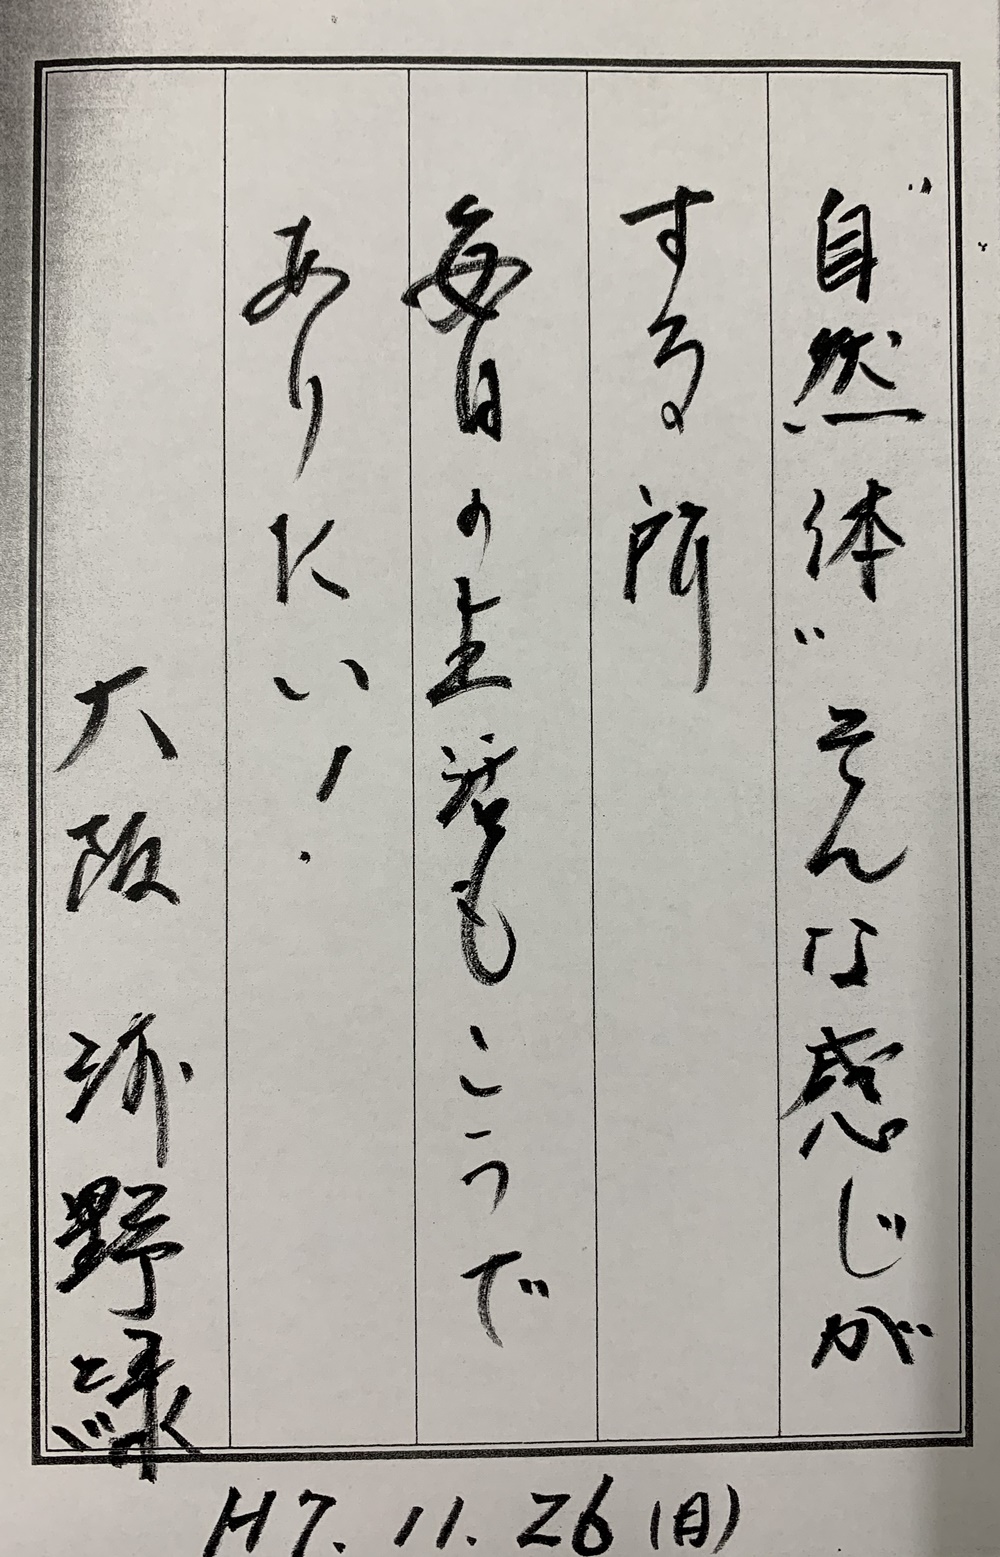 "自然体"そんな感じが
する所
毎日の生活もこうで
ありたい!
大阪 浦野緑
H7.11.26(日)